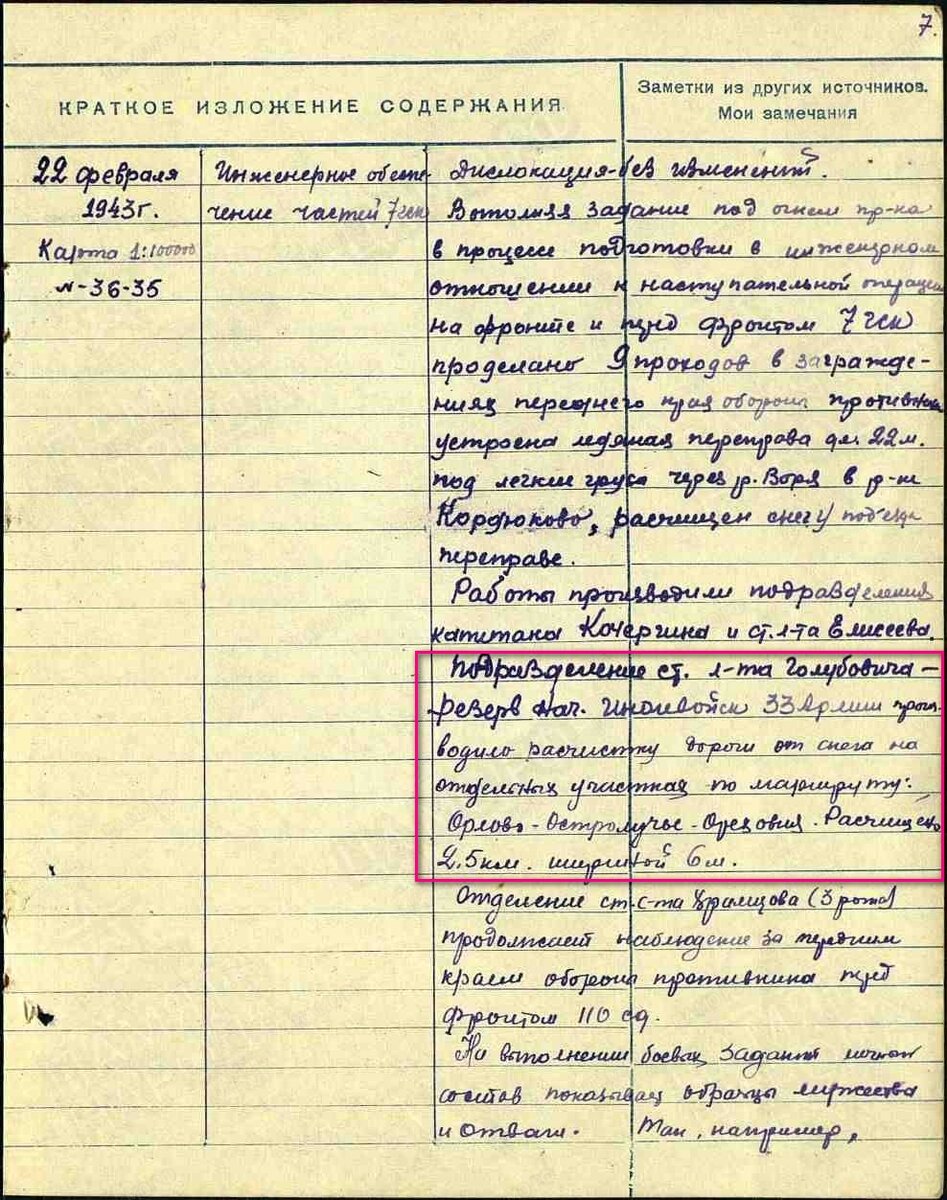 7.
КРАТКОЕ ИЗЛОЖЕНИЕ СОДЕРЖАНИЯ
Заметки из других источников.
Мои замечания
22 февраля
1943г.
Карта 1:100000
N-36-35
Инженерное обеспе-
чение частей 7 гск
Дислокация-без изменений.
Выполняя задание под огнем пр-ка
в процессе подготовки в инженерном
отношении к наступательной операции
на фронте и пред фронтом 7 гск
проделано 9 проходов в загражде-
ниях переднего края обороны противника
устроена ледяная переправа дл. 22 м.
под легкие груза через р. Воря в р-не
Кордюково, расчищен снег у подъезда
переправе.
Работы производили подразделения
капитана Кочергина и ст. л-та Елисеева.
Подразделение ст. л-та Голубовича –
резерв нач. инжвойск 33 Армии произ-
водило расчистку дороги от снега на
отдельных участках по маршруту:
Орлово - Остролучье - Ореховня. Расчищено
2,5 км. шириной 6 м.
Отделение ст. с-та (3 рота)
продолжает наблюдение за передним
краем обороны противника пред
фронтом 110 сд.
На выполнении боевых заданий личный
состав показывает образцы мужества
и отваги. Так, например,